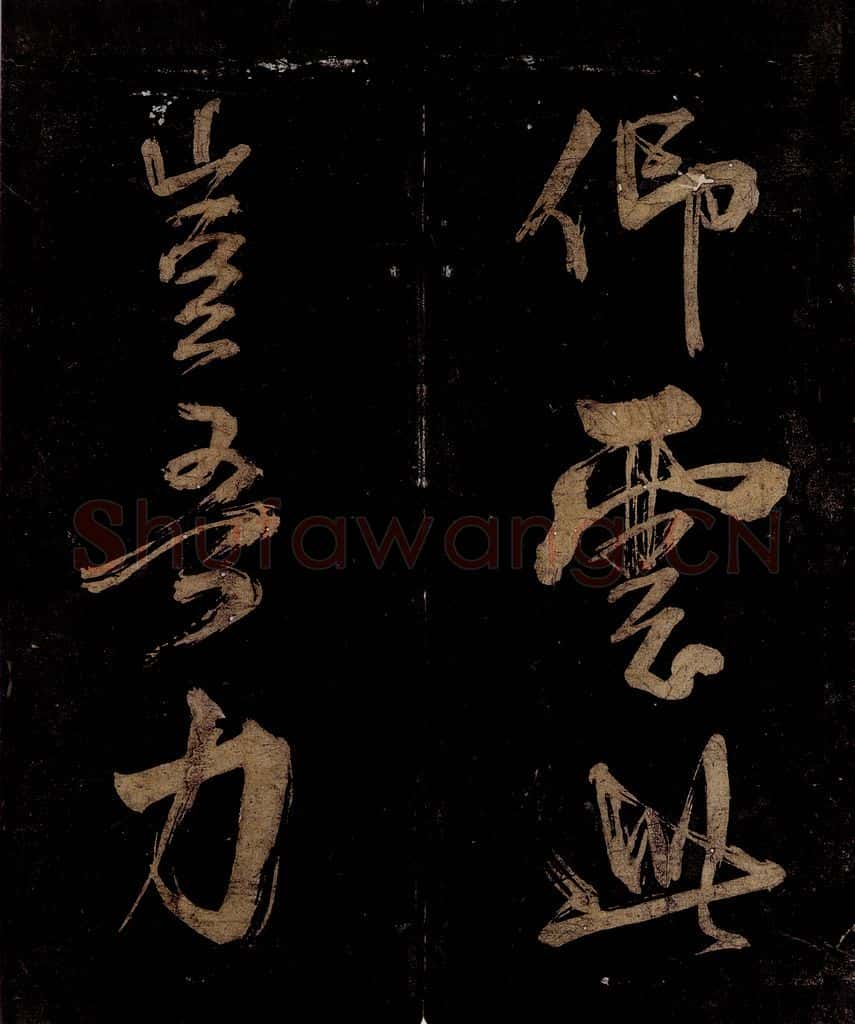 仰雲此
豈吾力
Shufawang.CN